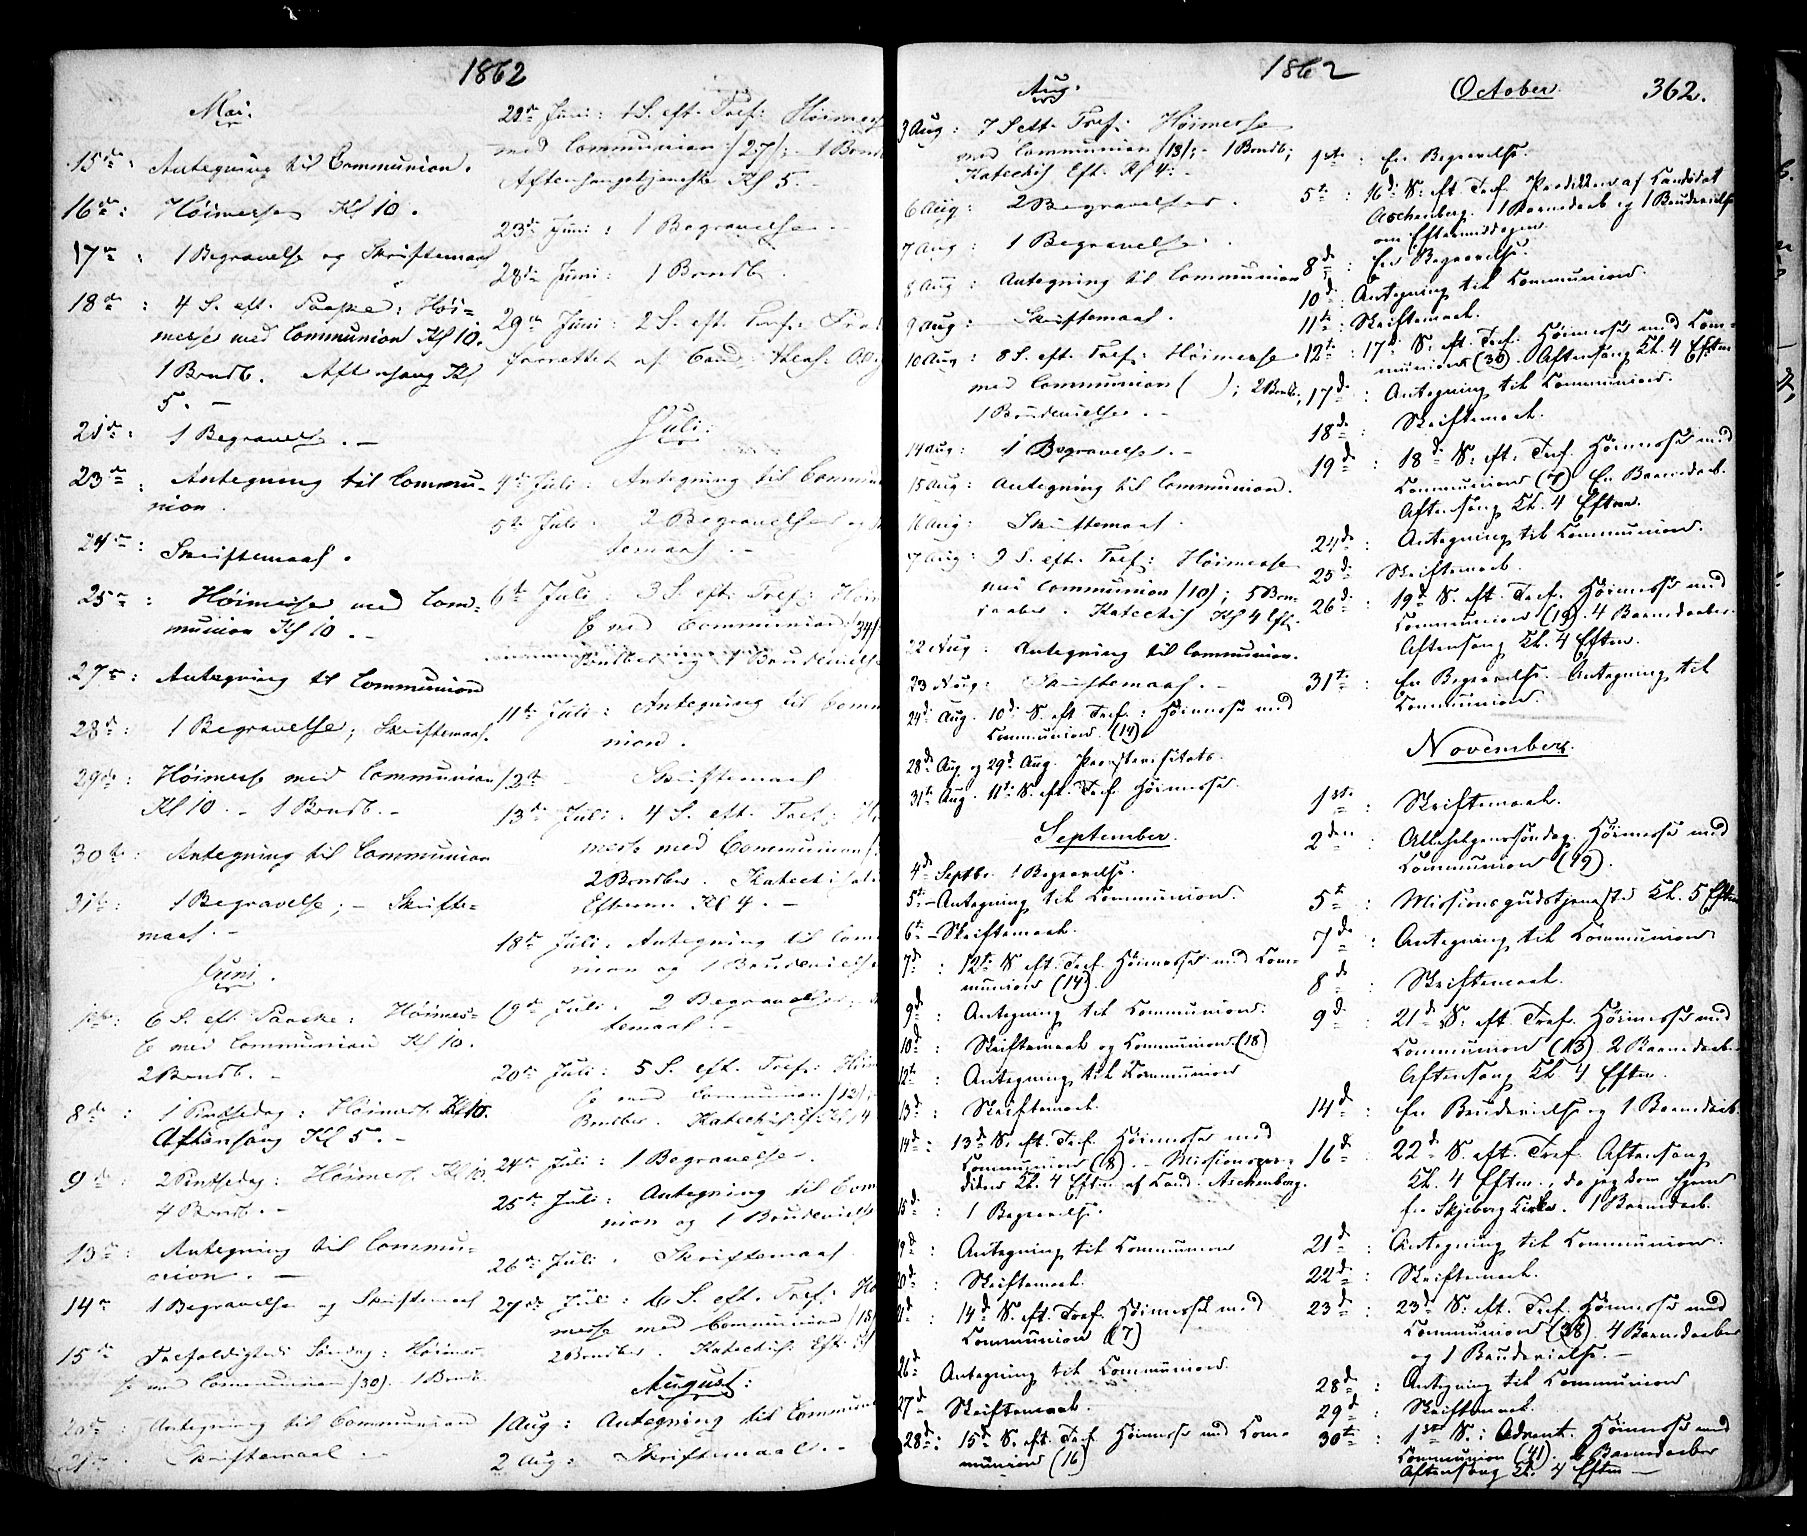 1862
Mai.
15de: Antegning til Communion.
16de: Höimesse Kl 10.
17de: 1 Begravelse og Skriftemaal
18de: 4 S. eft. Paaske: Höi-
messe med Communion Kl 10.
1 Barndb. Aftensang Kl
5. –
21de: 1 Begravelse. –
23de: Antegning til Commu-
nion.
24de: Skriftemaal.
25de: Höimesse med Com-
munion Kl 10. –
27de: Antegning til Communion
28de: 1 Begravelse; Skriftemaal.
29de: Höimesse med Communion
Kl 10. – 1 Barndb. –
30te: Antegning til Communion
31te: 1 Begravelse; – Skrifte-
maal. –
Juni.
1ste: 6 S. eft. Paaske: Höimes-
se med Communion Kl 10.
2 Barndb. –
8de: 1 Pintsedag: Höimess. Kl 10.
Aftensang Kl 5. –
9de: 2 Pintsedag: Höimess. Kl 10.
4 Barndb. –
13de: Antegning til Commu-
nion. –
14de: 1 Begravelse og Skriftemaal
15de Trefoldigheds Söndag: Höimes-
se med Communion (30). 1 Barndb.
20de: Antegning til Communion
21de. Skriftemaal –
22de Juni: 1 S. eft. Tref: Höimesse
med Communion (27); – 1 Barndb
Aftensangstjeneste Kl 5. –
23de Juni: 1 Begravelse. –
28de Juni: 1 Barndb.
29de Juni: 2 S. eft. Tref:
forrettet af Cand. theol:
Juli:
4de Juli: Antegning til Commun
5te Juli: 2 Begravelser og
temaal. –
6te Juli: 3 S. eft. Tref: Höim
se med Communion (34)
Barndb og 1 Brudevielse
11te Juli: Antegning til Comm
nion.
12te – Skriftemaal
13de Juli: 4 S. eft. Tref: Hö
messe med Communion
2 Barndber. Katechisat
Efterm Kl 4. –
18de Juli: Antegning til Com
nion og 1 Brudevielse
19de Juli. 2 Begravelser,
temaal. –
20de Juli: 5 S. eft. Tref: Höim
se med Communion (12);
Barndber. Katechis. Eft. Kl 4
24de Juli: 1 Begravelse.
25de Juli: Antegning til Com
nion og 1 Brudevielse
26de Juli. Skriftemaal
27de Juli: 6 S. eft. Tref: Hö
messe med Communion (18)
2 Barndber. Katechis: Eft: Kl
August:
1 Aug: Antegning til Commun
2 Aug: Skriftemaal. –
1862
362.
Aug.
3 Aug: 7 S eft. Tref: Höimesse
med Communion (13); – 1 Barndb;
Katechis Eft. Kl 4: –
6 Aug: 2 Begravelser.
7 Aug: 1 Begravelse.
8 Aug: Antegning til Communion
9 Aug: Skriftemaal.
10 Aug: 8 S. eft. Tref: Höimesse
med Communion ( ); 2 Barndb,
1 Brudevielse. –
14 Aug: 1 Begravelse. –
15 Aug: Antegning til Communion.
16 Aug: Skriftemaal.
17 Aug: 9 S. eft. Tref: Höimesse
med Communion (10); 5 Barn-
daaber. Katechis Kl 4 Eft.
22 Aug: Antegning til Communion.
23 Aug: Skriftemaal. –
24de Aug. 10de S. eft Tref.: Höimesse med
Communion. (14)
28de Aug og 29de Aug. Provstevisitats.
31te Aug. 11te S. eft. Tref. Höimesse.
September.
4de Septbr 1 Begravelse.
5te – Antegning til Communion.
6te – Skriftemaal.
7de: 12te S. eft. Tref. Höimesse med Com-
munion (14).
9de: Antegning til Communion.
10de: Skriftemaal og Communion (18)
12te: Antegning til Communion
13de: Skriftemaal.
14de: 13de S. eft. Tref. Höimesse med
Communion (8). – Missionspræ-
diken Kl. 4 Eftm af Cand. Aschenberg.
15de: 1 Begravelse.
19de: Antegning til Communion
20de: Skriftemaal.
21de: 14de S. eft. Tref. Höimesse med
Communion (7)
26de Antegning til Communion.
27de Skriftemaal.
28de: 15de S. eft. Tref. Höimesse med Com-
munion (16)
October.
1ste: En Begravelse.
5te: 16de S. eft Tref. Prædiken af Candidat
Aschenberg. 1 Barnedaab og 1 Brudevielse
om Eftermiddagen.
8de: En Begravelse.
10de: Antegning til Communion.
11te: Skriftemaal.
12te: 17de S. eft. Tref. Höimesse med Com-
munion (30). Aftensang Kl. 4 Eftm
17de: Antegning til Communion.
18de: Skriftemaal.
19de: 18de S. eft. Tref. Höimesse med
Communion (7) En Barnedaab.
Aftensang Kl. 4 Eftm.
24de: Antegning til Communion.
25de: Skriftemaal.
26de: 19de S. eft. Tref. Höimesse med
Communion (19). 4 Barnedaaber
Aftensang Kl. 4 Eftm.
31te: En Begravelse. – Antegning til
Communion.
November.
1ste: Skriftemaal.
2den: Allehelgenssöndag. Höimesse med
Communion (19).
5te: Missionsgudstjeneste Kl. 5 Eftm
7de: Antegning til Communion
8de: Skriftemaal.
9de: 21de S. eft Tref. Höimesse med
Communion (13). 2 Barnedaaber
Aftensang Kl. 4 Eftm.
14de: En Brudevielse og 1 Barnedaab.
16de: 22de S. eft. Tref. Aftensang
Kl. 4 Eftm., da jeg kom hjem
fra Skjeberg Kirke. 1 Barnedaab.
21de: Antegning til Communion.
22de: Skriftemaal.
23de: 23de S. eft. Tref. Höimesse med
Communion (38). 4 Barnedaaber
og 1 Brudevielse. –
28de: Antegning til Communion
29de: Skriftemaal.
30te: 1ste S. i Advent. Höimesse med
Communion (41). 2 Barnedaaber
Aftensang Kl. 4 Eftm –